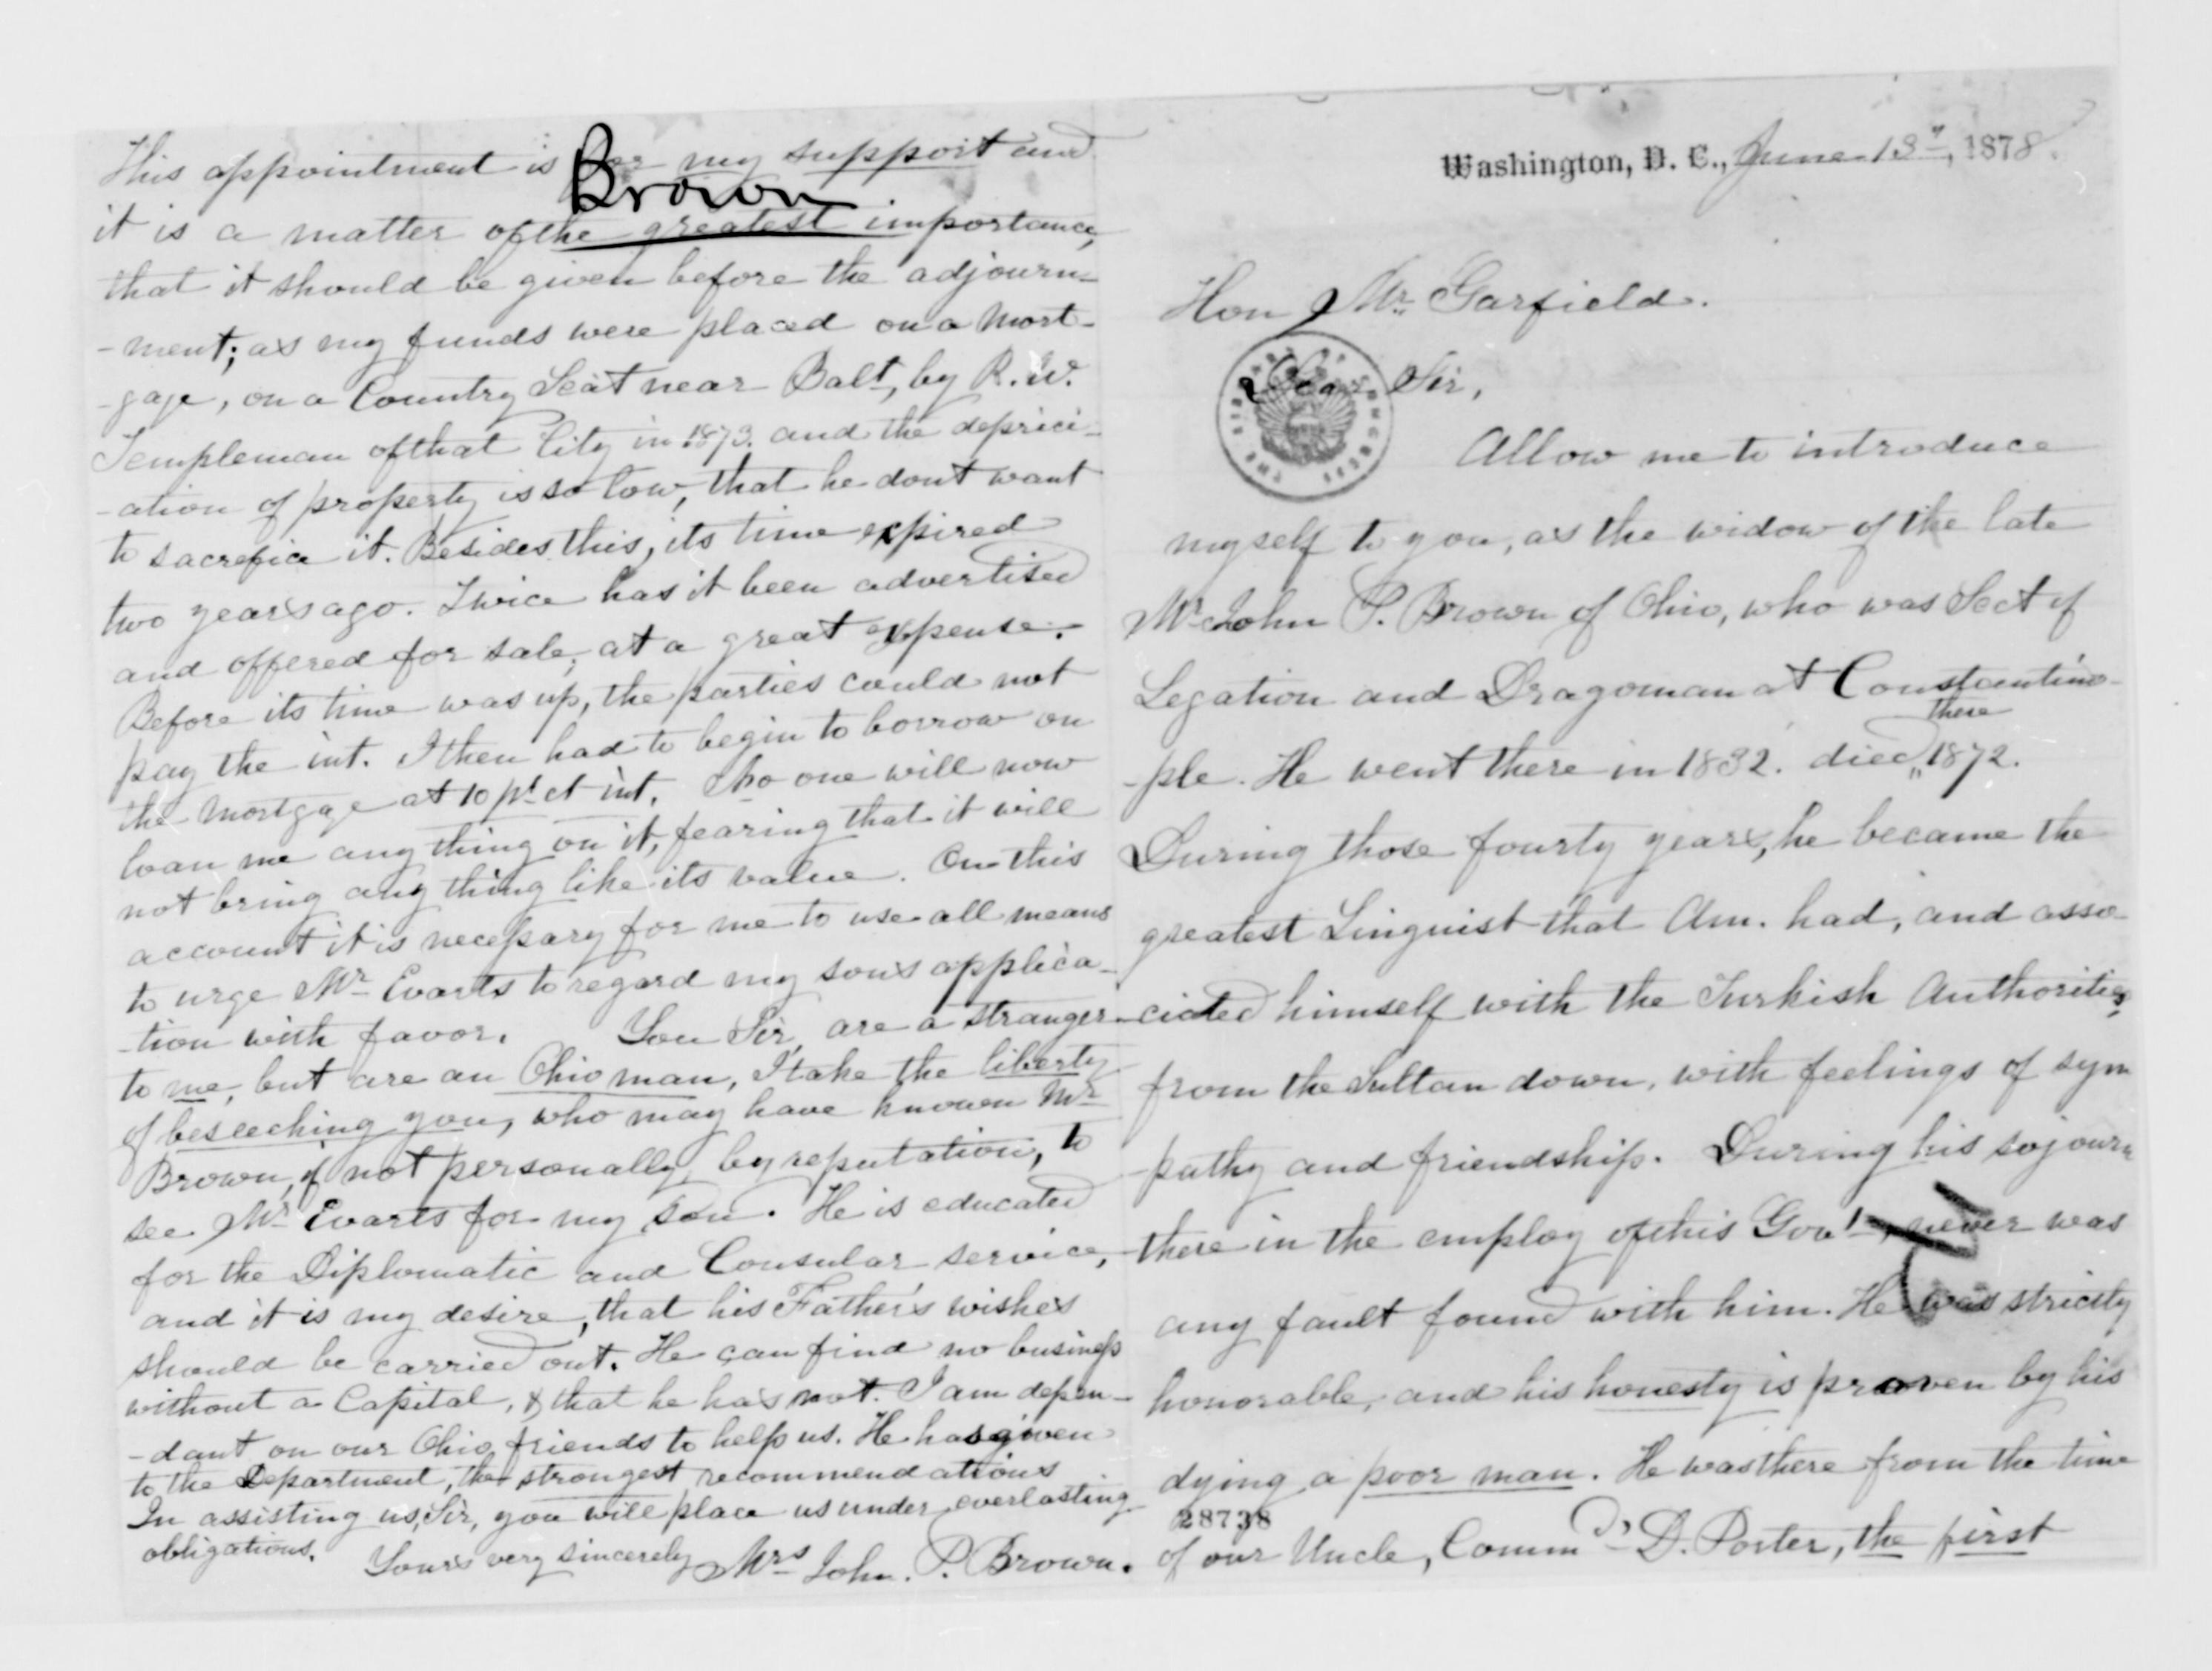 Washington, D. C., June 13th, 1878.
Hon Mr. Garfield.
Dear Sir,
Allow me to introduce
myself to you, as the widow of the late
Mr John P. Brown of Ohio, who was Sect of
Legation and Dragoman at Constantino-
there
-ple. He went there in 1832. died 1872.
During those fourty years, he became the
greatest Linguist that Am. had, and asso-
-ciated himself with the Turkish Authorities,
from the Sultan down, with feelings of sym
pathy and friendship. During his sojourn
there in the employ of this Govt, never was
any fault found with him. He was strictly
honorable, and his honesty is proven by his
dying a poor man. He was there from the time
28738
of our Uncle, Commdr D. Porter, the first
This appointment is for my support and
Brown
it is a matter of the greatest importance,
that it should be given before the adjourn-
-ment; as my funds were placed on a Mort-
-gage, on a Country Seat near Balt, by R. W.
Templeman of that City in 1873. and the deprici-
-ation of property is so low, that he dont want
to sacrefice it. Besides this, its time expired
two years ago. Twice has it been advertised
and offered for sale, at a great expense.
Before its time was up, the parties could not
pay the int. I then had to begin to borrow on
the Mortgage at 10 pr ct int. No one will now
loan me any thing on it, fearing that it will
not bring any thing like its value. On this
account it is necessary for me to use all means
to urge Mr Evarts to regard my sons applica-
-tion with favor. You Sir, are a stranger
to me, but are an Ohio man, I take the liberty
of beseeching you, who may have known Mr
Brown, if not personally, by reputation, to
see Mr Evarts for my son. He is educated
for the Diplomatic and Consular service,
and it is my desire, that his Father's wishes
should be carried out. He can find no business
without a Capital, & that he has not. I am depen-
-dant on our Ohio friends to help us. He has given
to the Department, the strongest recommendations
In assisting us, Sir, you will place us under everlasting
obligations. Yours very sincerely Mrs John. P. Brown.